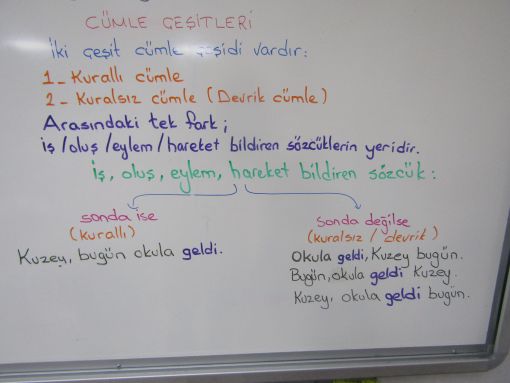 CÜMLE ÇEŞİTLERİ
İki çeşit cümle çeşidi vardır:
1- Kurallı cümle
2- Kuralsız cümle (Devrik cümle)
Arasındaki tek fark;
iş/oluş/eylem/hareket bildiren sözcüklerin yeridir.
İş, oluş, eylem, hareket bildiren sözcük:
sonda ise
(kurallı)
Kuzey, bugün okula geldi.
sonda değilse
(kuralsız / devrik)
Okula geldi, Kuzey bugün.
Bugün, okula geldi Kuzey.
Kuzey, okula geldi bugün.